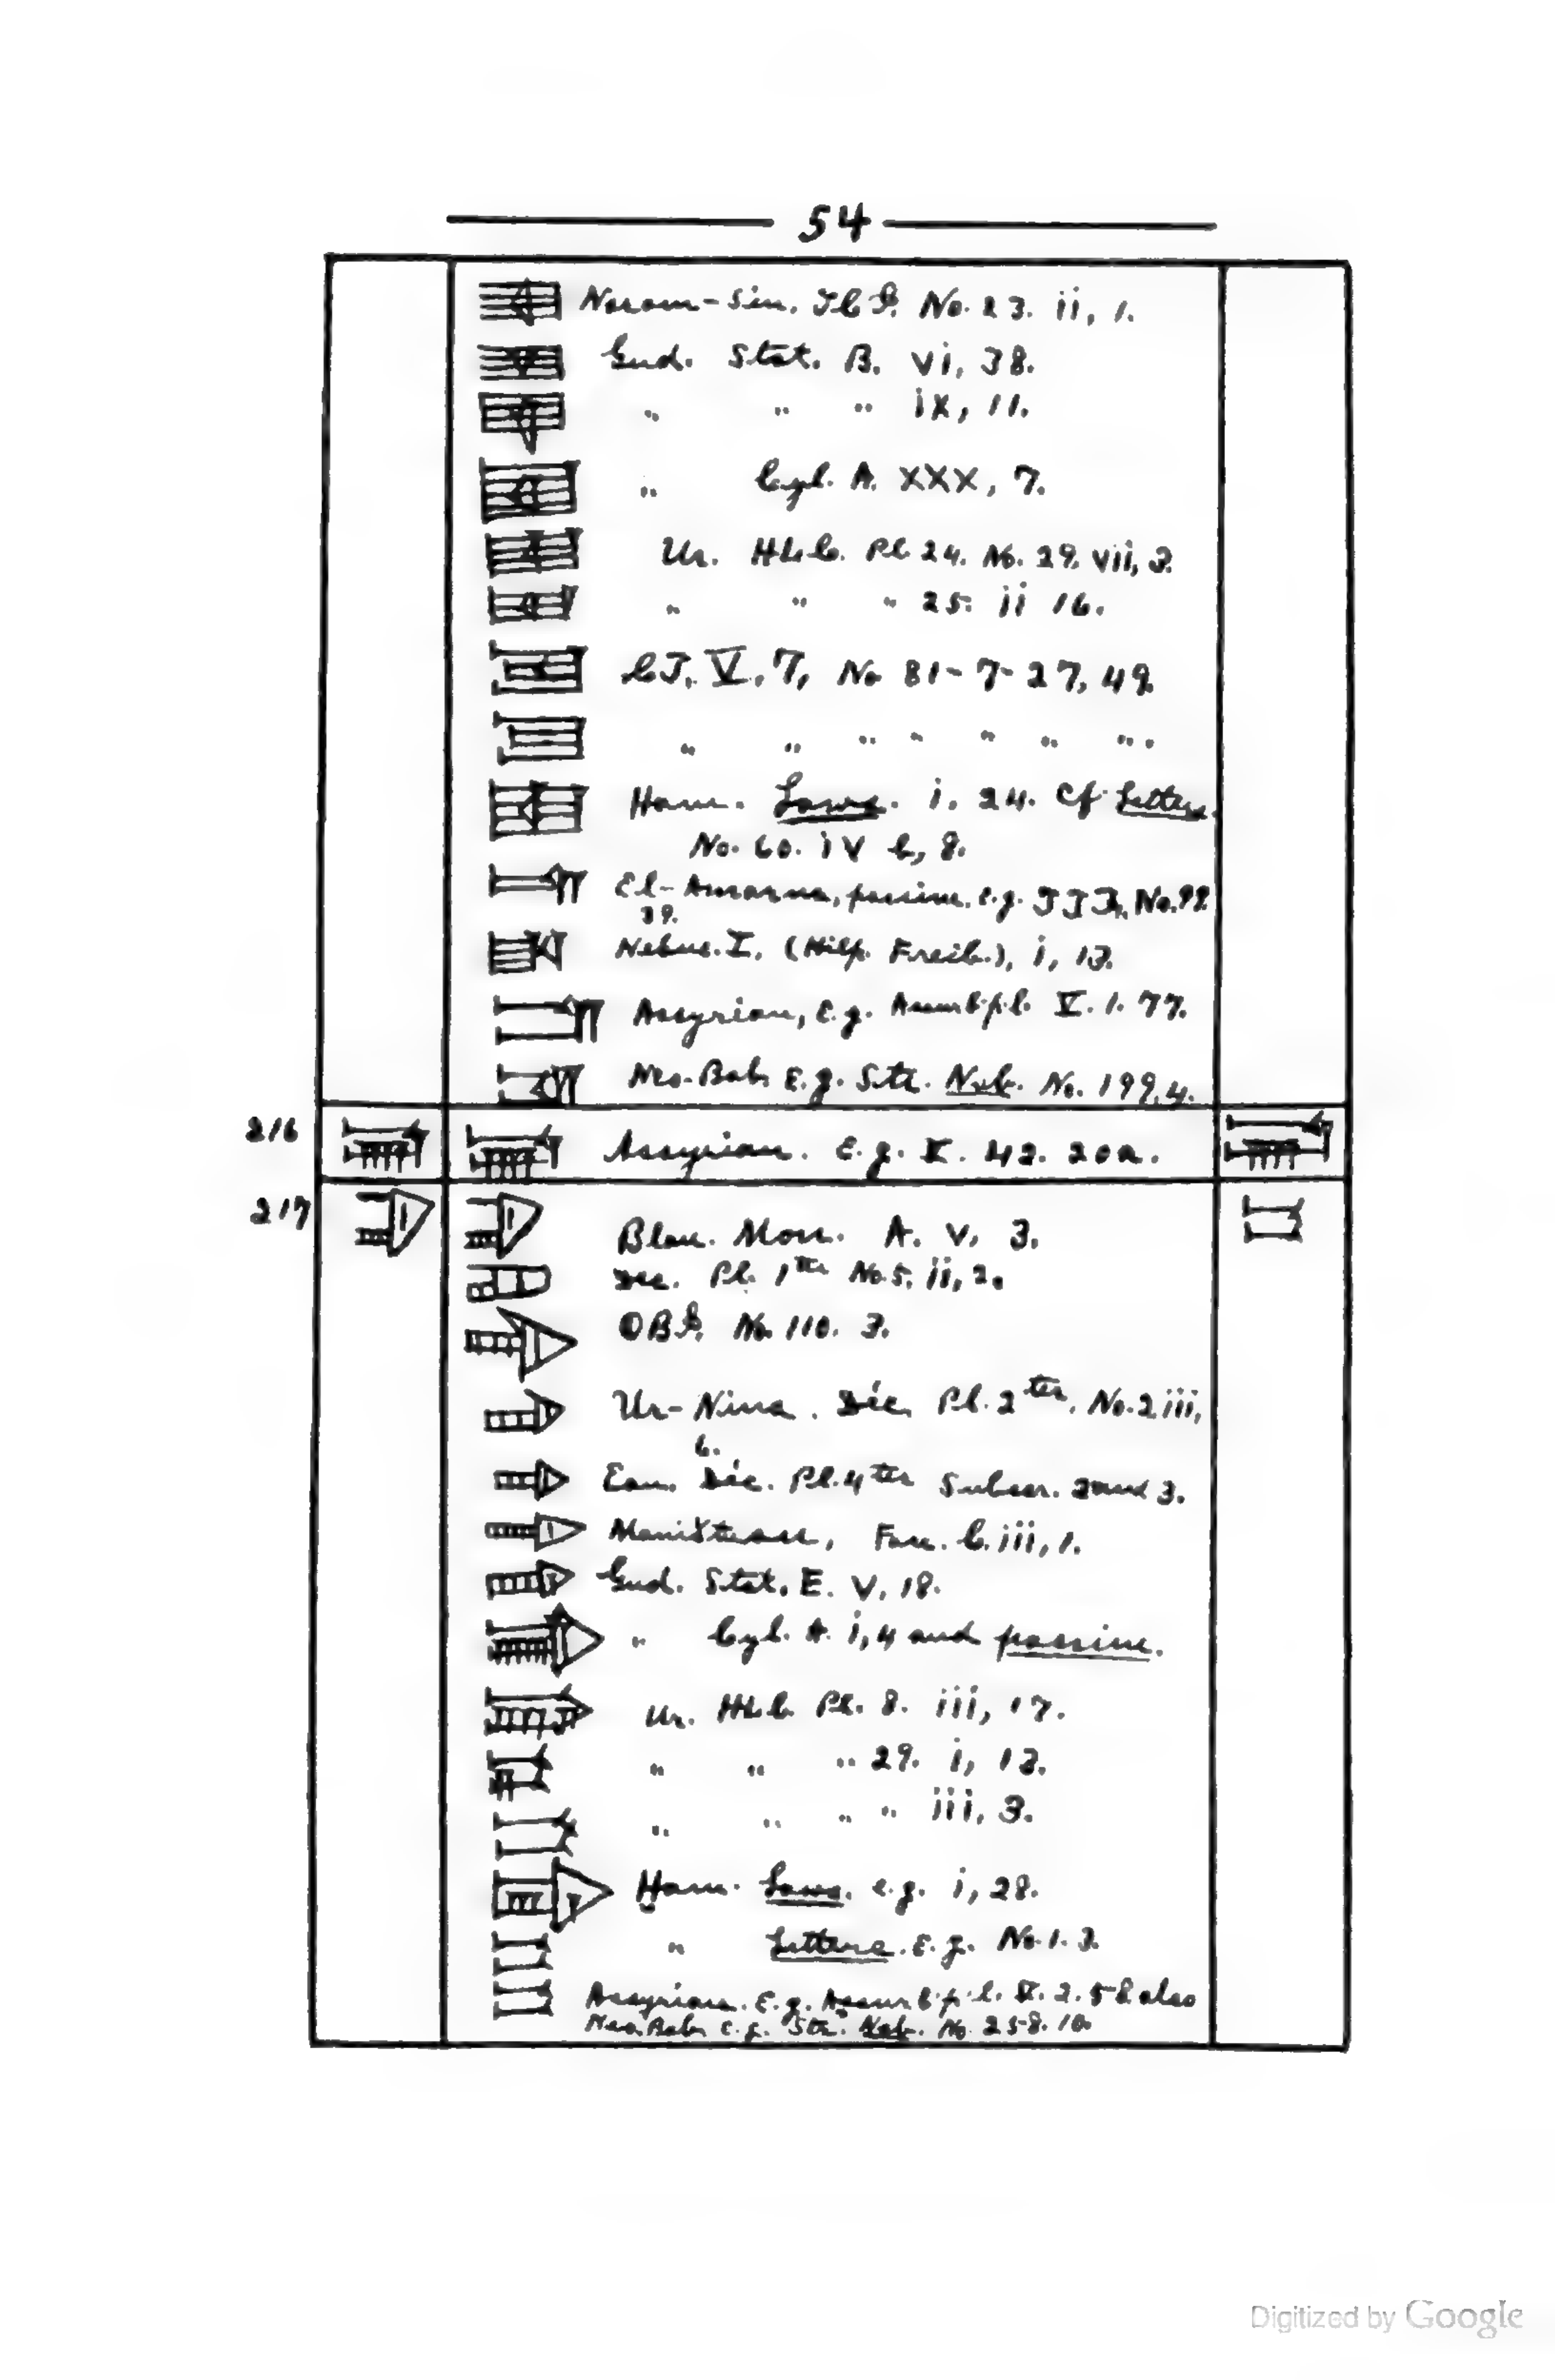 54
Naram-Sin. No. 23. ii, 1.
Gud. Stat. B. vi, 38.
" " " ix, 11.
" Cyl. A. XXX, 7.
Ur. HLC. Pl. 24. No. 29. vii, 3.
" " " 25. ii 16.
CT. V. 7, No 81-7-27, 49.
" " " " " " "
Ham. Laws. i. 24. Cf. Letters
No. 60. iv b, 8.
El-Amarna, passim. e.g. No. 99.
39.
Nebuc. I. (Hilp. Freib.), i, 13.
Assyrian, E.g. V. 1. 77.
Neo-Bab. E.g. Str. Nab. No. 199,4.
216 Assyrian. E.g. V. 42. 20a.
217 Blau. Mon. A. v, 3.
Déc. Pl. 1ter No. 5. ii, 2.
OBI. No. 110. 3.
Ur-Nina. Déc. Pl. 2ter, No. 2, iii,
6.
Ean. Déc. Pl. 4ter Subscr. 2 and 3.
Maništusu, Face. C. iii, 1.
Gud. Stat. E. V, 18.
" Cyl. A. i, 4 and passim.
Ur. HLC. Pl. 8. iii, 17.
" " " 29. i, 13.
" " " " iii, 3.
Ḫam. Laws. e.g. i, 28.
" Letters. E.g. No. 1. 3.
Assyrian. E.g. 2. 58 also
Neo. Bab. e.g. Str. No. 258. 10.
Digitized by Google